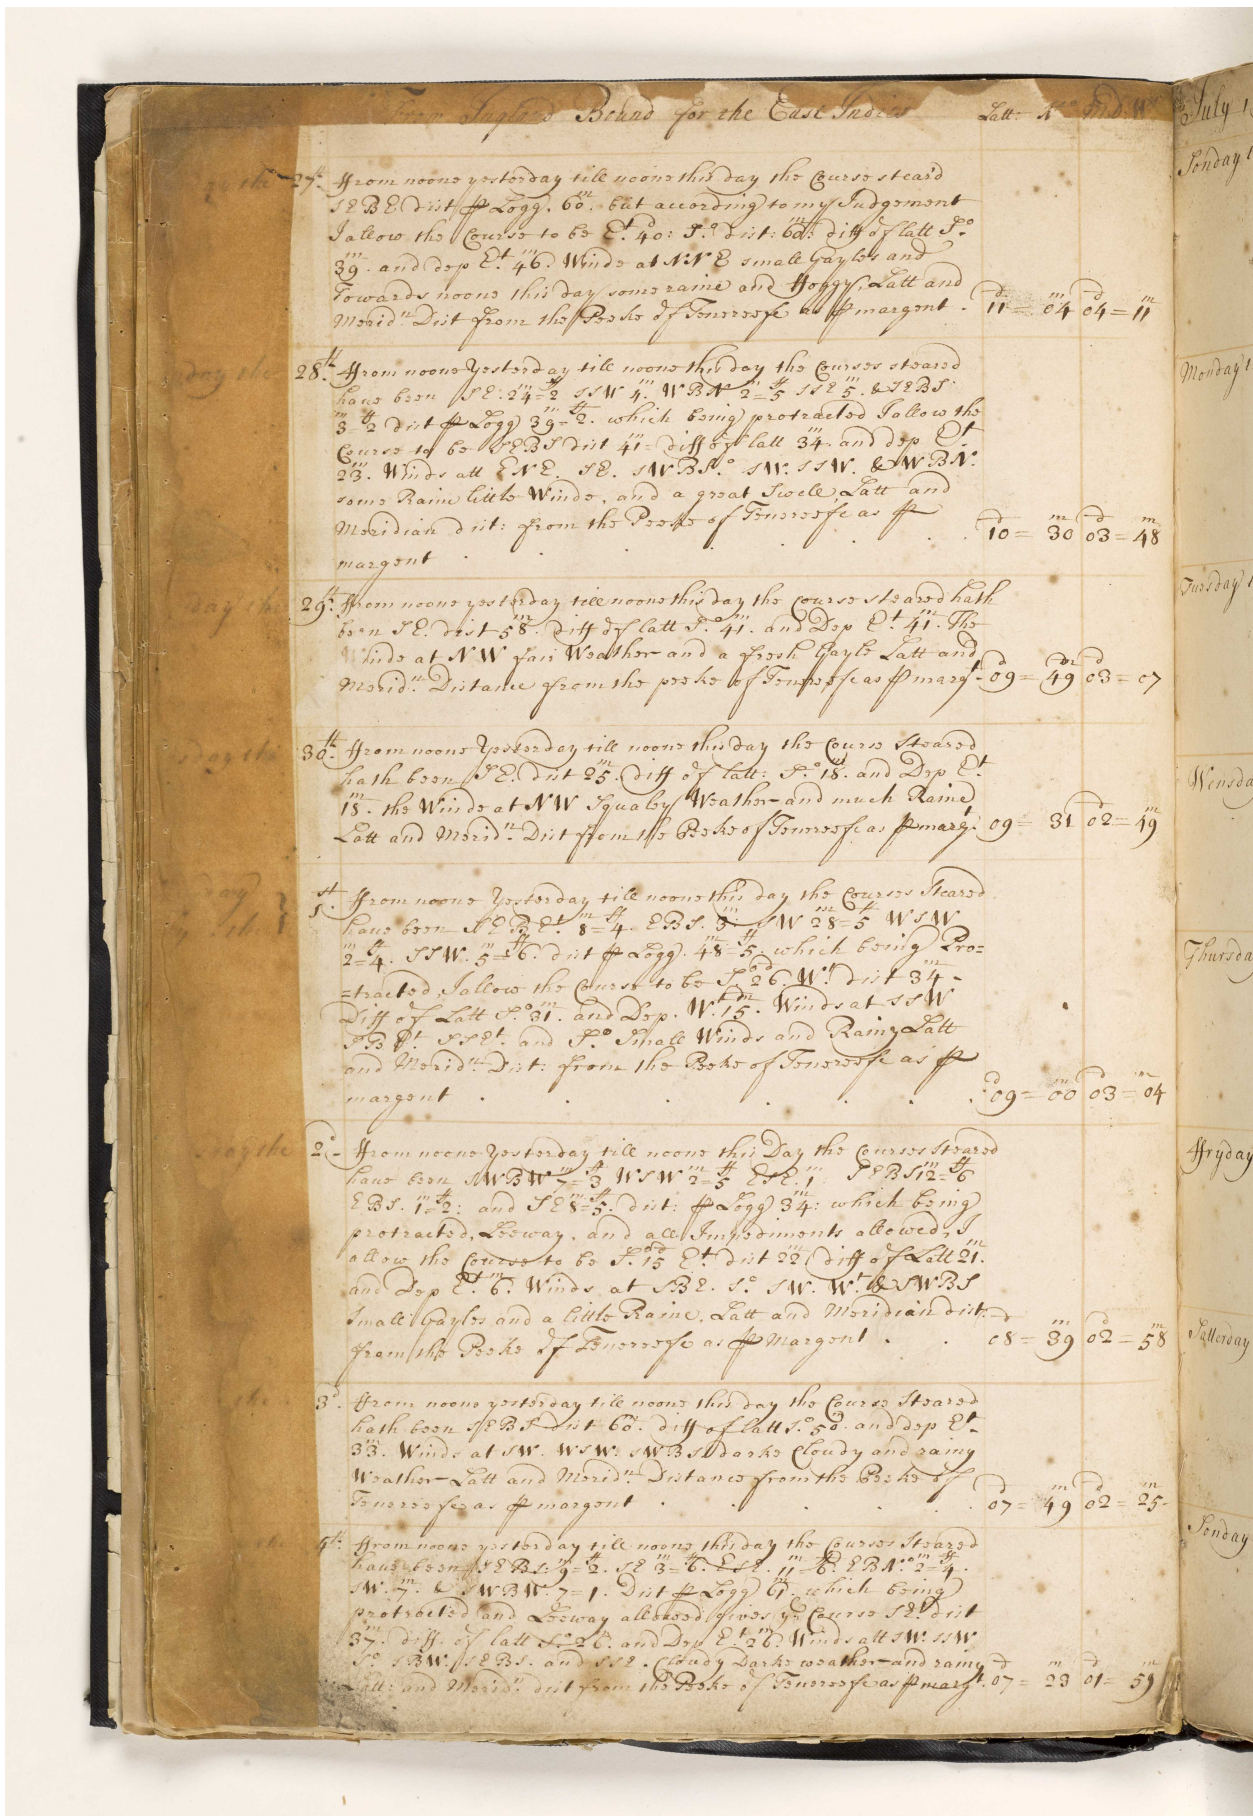 From England Bound for the East Indies Latt: No Mrd: Wt
27th from noone yesterday till noone this day the Course stear'd
SEBE dist p Logg. 60m. but according to my Judgement
I allow the Course to be Et. 40d: So dist: 60m: diff of latt So
39m. and dep Et. 46m. Winds at NNE small Gayles and
Towards noone this day some raine and ffoggy, Latt and
Merid.n Dist from the Peeke of Tenereefe as p margent. 11d = 04m 04d = 11m
day the 28th ffrom noone Yesterday till noone this day the Courses steared
have been SE: 24m=2ff SSW 4m. WBN 2m=5ff SSE 5m. & SEBS
3m=2ff dist p Logg 39m=2ff. which being protracted I allow the
Course to be SEBS dist 41m diff of latt 34m and dep Et
23m. Winds att ENE. SE. SWBSo. SW. SSW. & WBN.
some Raine little Winds, and a great Swell, Latt and
Meridian dist: from the Peeke of Tenereefe as p 10d = 30m 03d = 48m
margent
day the 29th. ffrom noone yesterday till noone this day the Course steared hath
been SE. dist 58m. diff of latt So. 41m. and Dep Et. 41m. The
Winds at NW fair Weather and a fresh Gayle Latt and
Merid.n Distance from the peeke of Tenereefe as p margt. 09d = 49m 03d = 07
30th. ffrom noone Yesterday till noone this day the Course Steared
hath been SE. dist 25m. diff of latt: So. 18m. and Dep Et.
18m. the Winds at NW Squaley Weather and much Raine
Latt and Merid.n Dist from the Peeke of Tenereefe as p margt. 09 = 31 02d = 49m
1st. ffrom noone Yesterday till noone this day the Courses Steared
have been SEBEt. 8m=4ff. EBS. 3m: SW 28m=5ff WSW
2m=4ff. SSW. 5m=6ff. dist p Logg. 48m=5ff. which being Pro=
=tracted, I allow the Course to be So. 26d. Wt. dist 34m
Diff of Latt So. 31m. and Dep. Wt. 15m. Winds at SSW
SBEt. SSEt. and So. Small Winds and Rainy Latt
and Merid.n Dist: from the Peeke of Tenereefe as p
margent 09d = 00m 03d = 04m
day the 2d ffrom noone Yesterday till noone this Day the Courses steared
have been SWBW 7m=3ff WSW 2m=5ff ESE. 1m SEBS 12m=6ff
EBS. 1m=2ff: and SE 8m=5ff. dist: p Logg 34m: which being
protracted, Leeway, and all Impediments allowed, I
allow the Course to be So. 15d Et. dist 22m diff of Latt 21m.
and Dep Et. 6m. Winds at SBE. So SW. Wt. & SWBS
Small Gayles and a little Raine. Latt and Meridian dist:
from the Peeke of Tenereefe as p Margent. 08d = 39m 02d = 58m
3d. ffrom noone yesterday till noone this day the Course Steared
hath been SEBS dist 60m. diff of latt So. 50m. and dep Et
33m. Winds at SW. WSW. SWBS. darke Cloudy and rainy
Weather Latt and Merid.n Distance from the Peeke of
Tenereefe as p margent 07d = 49m 02d = 25m
4th: ffrom noone yesterday till noone this day the Courses Steared
have been SEBS: 9m=2ff. SE 3m=6ff. ESE. 11m=6ff. EBNo. 2m=4ff.
SW. 7m: & SWBW. 7=1. Dist p Logg 61m. which being
protracted and Leeway allowed gives ye Course SE. dist
37m. diff. of latt So. 26m. and Dep Et. 26m. Winds att SW. SSW
So SBW. SEBS. and SSE. Cloudy Darke weather and rainy
Latt: and Merid.n dist from the Peeke of Tenereefe as p margt. 07d = 23m 01d = 59m
July
Sonday
Monday
Tuesday
Wensda
Thursda
ffryday
Satterday
Sonday